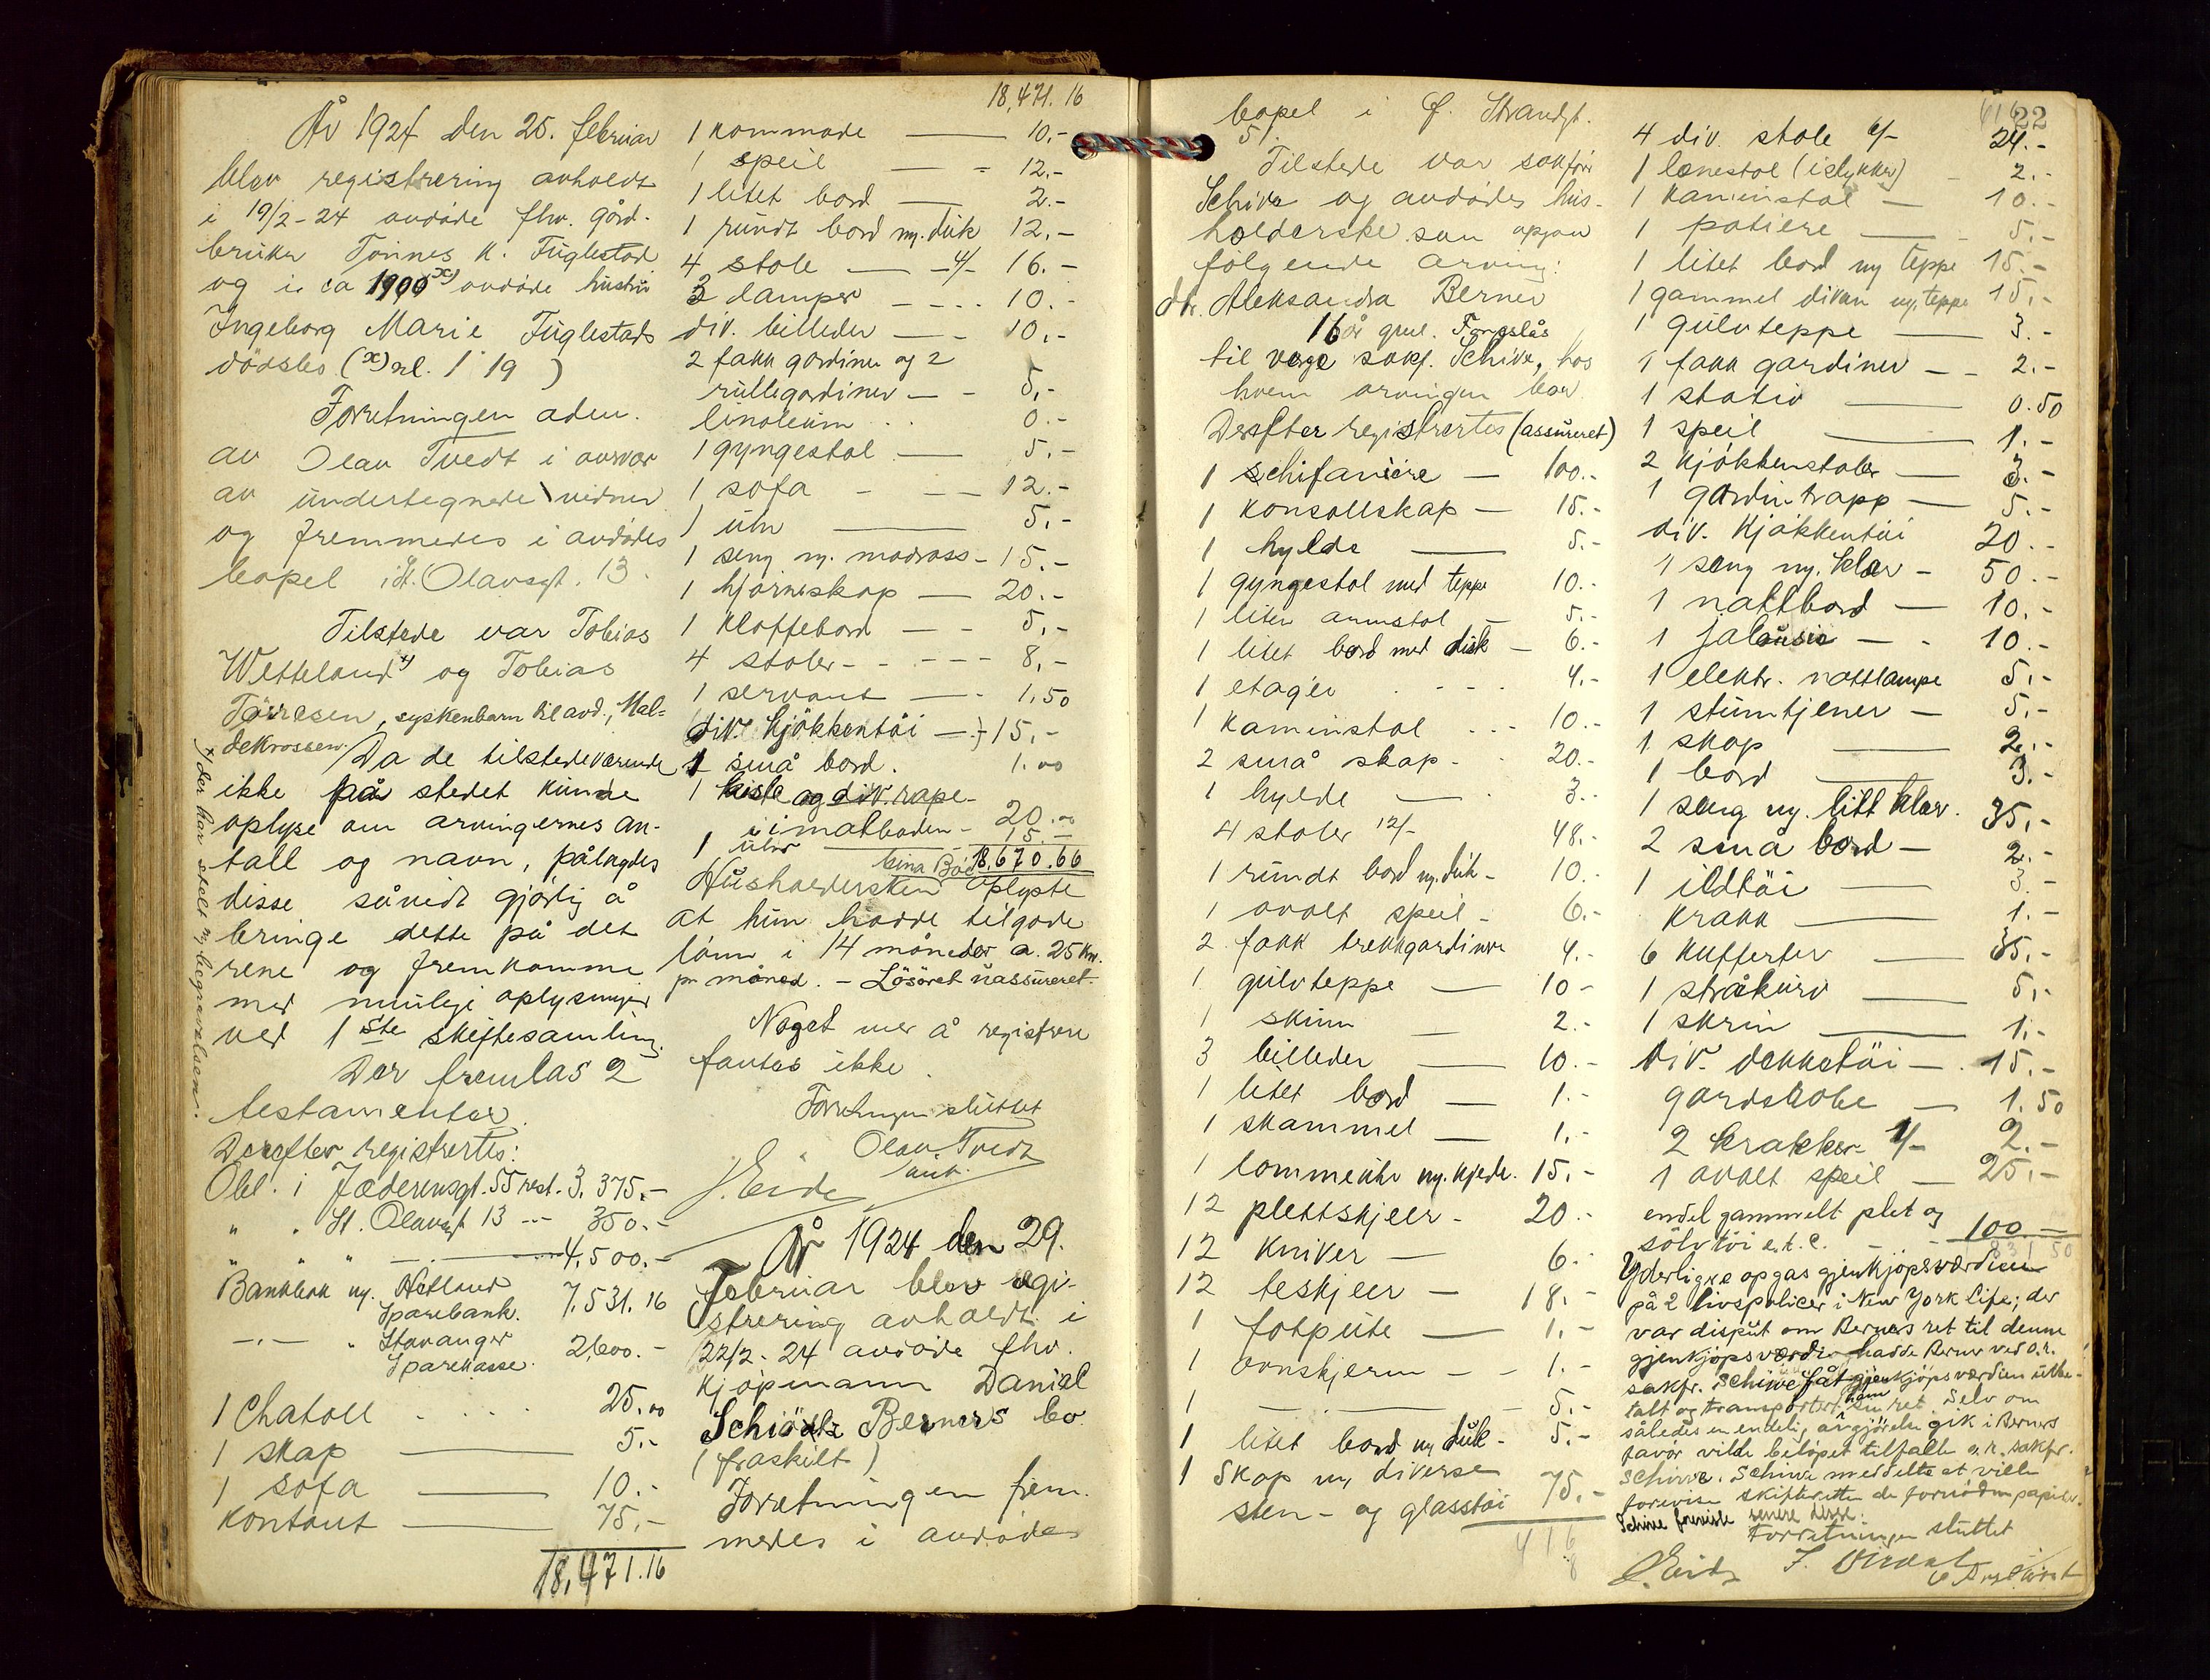 År 1924 den 25. februar
blev registrering avholdt
i 19/2-24 avdöde fhv. gård-
bruker Tönnes K. Fuglestad
og i ca 1900 x) avdöde hustru
Ingeborg Marie Fuglestads
dödsbo (x) kl. 1 19 )
Forretningen adm.
av Olav Tvedt i nærvær
av undertegnede vidner
og fremmedes i avdödes
bopel i St. Olavsgt. 13.
Tilstede var Tobias
Wetteland x) og Tobias
Törresen, syskenbarn til avd., Mal-
dekrossen. Da de tilstedeværende
ikke på stedet kunde
oplyse om arvingernes an-
tall og navn, pålagdes
disse såvidt gjörlig å
bringe dette på det
rene og fremkomme
med mulige oplysninger
ved 1ste skiftesamling.
Der fremlas 2
testamenter.
Derefter registrertes:
Obl. i Jæderensgt. 55 rest. 3.375.-
" " St. Olavsgt 13 --- 350.-
" " " — 4.500.-
Bankbok ny. Hetland
Sparebank. 7.531.16
—"— " Stavanger
Sparekasse. 2.600.-
1 Chatoll . . . . 25.00
1 skap — 5.-
1 sofa — 10.-
Kontant — 75.-
18,471.16
x) der har stelt m. begravelsen.
18,471.16
1 kommode — 10.-
1 speil — 12.-
1 litet bord — 2.-
1 rundt bord m. duk 12.-
4 stole — 4/- 16.-
3 lamper - - - - 10.-
div. billeder — 10.-
2 fakk gardiner og 2
rullegardiner — - 5.-
linoleum . . 0.-
1 gyngestol — 5.-
1 sofa - - — 12.-
1 uhr — 5.-
1 seng m. madrass - 15.-
1 hjörneskap — 20.-
1 klaffebord — - 5.-
4 stoler - - - - - 8.-
1 servant — - 1,50
div. kjökkentöi — 15.-
1 små bord . 1.00
1 kiste og div. rape-
i matboden - 20.00
1 uhr — 15.-
18.670.66
Husholdersken oplyste
at hun hadde tilgode
lönn i 14 måneder a. 25 kr.
pr måned. - Lösöret uassureret.
Noget mer å registrere
fantes ikke.
Forretningen sluttet
Olav Tvedt
aut.
J. Eide
År 1924 den 29.
Februar blev regi-
strering avholdt i
22/2-24 avdöde fhv.
kjöpmann Danial
Schiötz Berners bo
(fraskilt)
Forretningen frem-
medes i avdödes
bopel i Ö. Strandgt.
5.
Tilstede var sakförer
Schive og avdödes hus-
holderske som opgav
fölgende arving:
dtr. Aleksandra Berner
16 år gml. Foreslås
til verge sakf. Schive, hos
hvem arvingen bor.
Derefter registrertes (assureret)
1 schifaniere — 100.-
1 konsollskap — 15.-
1 hylde — 5.-
1 gyngestol med teppe 10.-
1 liten armstol — 5.-
1 litet bord med duk — 6.-
1 etager . - - - 4.-
1 kaminstol . - - 10.-
2 små skap - - 20.-
1 hylde — . 3.-
4 stoler 12/- 48.-
1 rundt bord m. duk - 10.-
1 ovalt speil - 6.-
2 fakk trekkgardiner 4.-
1 gulvteppe — 10-
1 skinn — 2.-
3 billeder — 10.-
1 litet bord — 1.-
1 skammel — 1.-
1 lommeuhr m. kjede. 15.-
12 plettskjeer - 20.-
12 kniver — 6.-
12 teskjeer — 18.-
1 fotpute — 1.-
1 ovnskjerm - - 1.-
1 — 5.-
1 litet bord m. duk - 5.-
1 skap m. diverse
sten- og glasstöi 75.-
416
8
616
22
4 div. stole 6/- 24.-
1 lænestol (istykker) - 2.-
1 kaminstol — 10.-
1 potiere — - 5.-
1 litet bord m teppe 15.-
1 gammel divan m. teppe 15.-
1 gulvteppe — 3.-
1 fakk gardiner - - 2.-
1 stativ — 0.50
1 speil — 1.-
2 kjökkenstoler — 3.-
1 gardintrapp — 5.-
div. kjökkentöi 20.-
1 seng m. klær - 50.-
1 nattbord — 10.-
1 jalousie — - 10.-
1 elektr. nattlampe 5.-
1 stumtjener — 5.-
1 skap — 2.-
1 bord — 3.-
1 seng m. litt klær. 35.-
2 små bord — 2.-
1 ildtöi — 3.-
krakk — 1.-
6 kufferter — 35.-
1 stråkurv — 5.-
1 skrin — 1.-
div. dekketöi — . 15.-
garderobe — 1.50
2 krakker 1/- 2.-
1 ovalt speil — 25.-
endel gammelt plet og
sölvtöi e.t.c. - - 100.-
831 50
Yderligere opgas gjenkjöpsværdien
på 2 livspolicer i New York Life; der
var disput om Berners ret til denne
gjenkjöpsværdi hadde Berner ved o.r.
sakfr. Schive fåt gjenkjöpsværdien utbe-
talt og transportert ham sin ret. Selv om
således en endelig avgjörelse gik i Berners
favör vilde belöpet tilfalle o.r. sakfr.
Schive. Schive meddelte at ville
forevise skifteretten de fornödne papirer.
Schive foreviste senere disse.
Forretningen sluttet
J. Eide